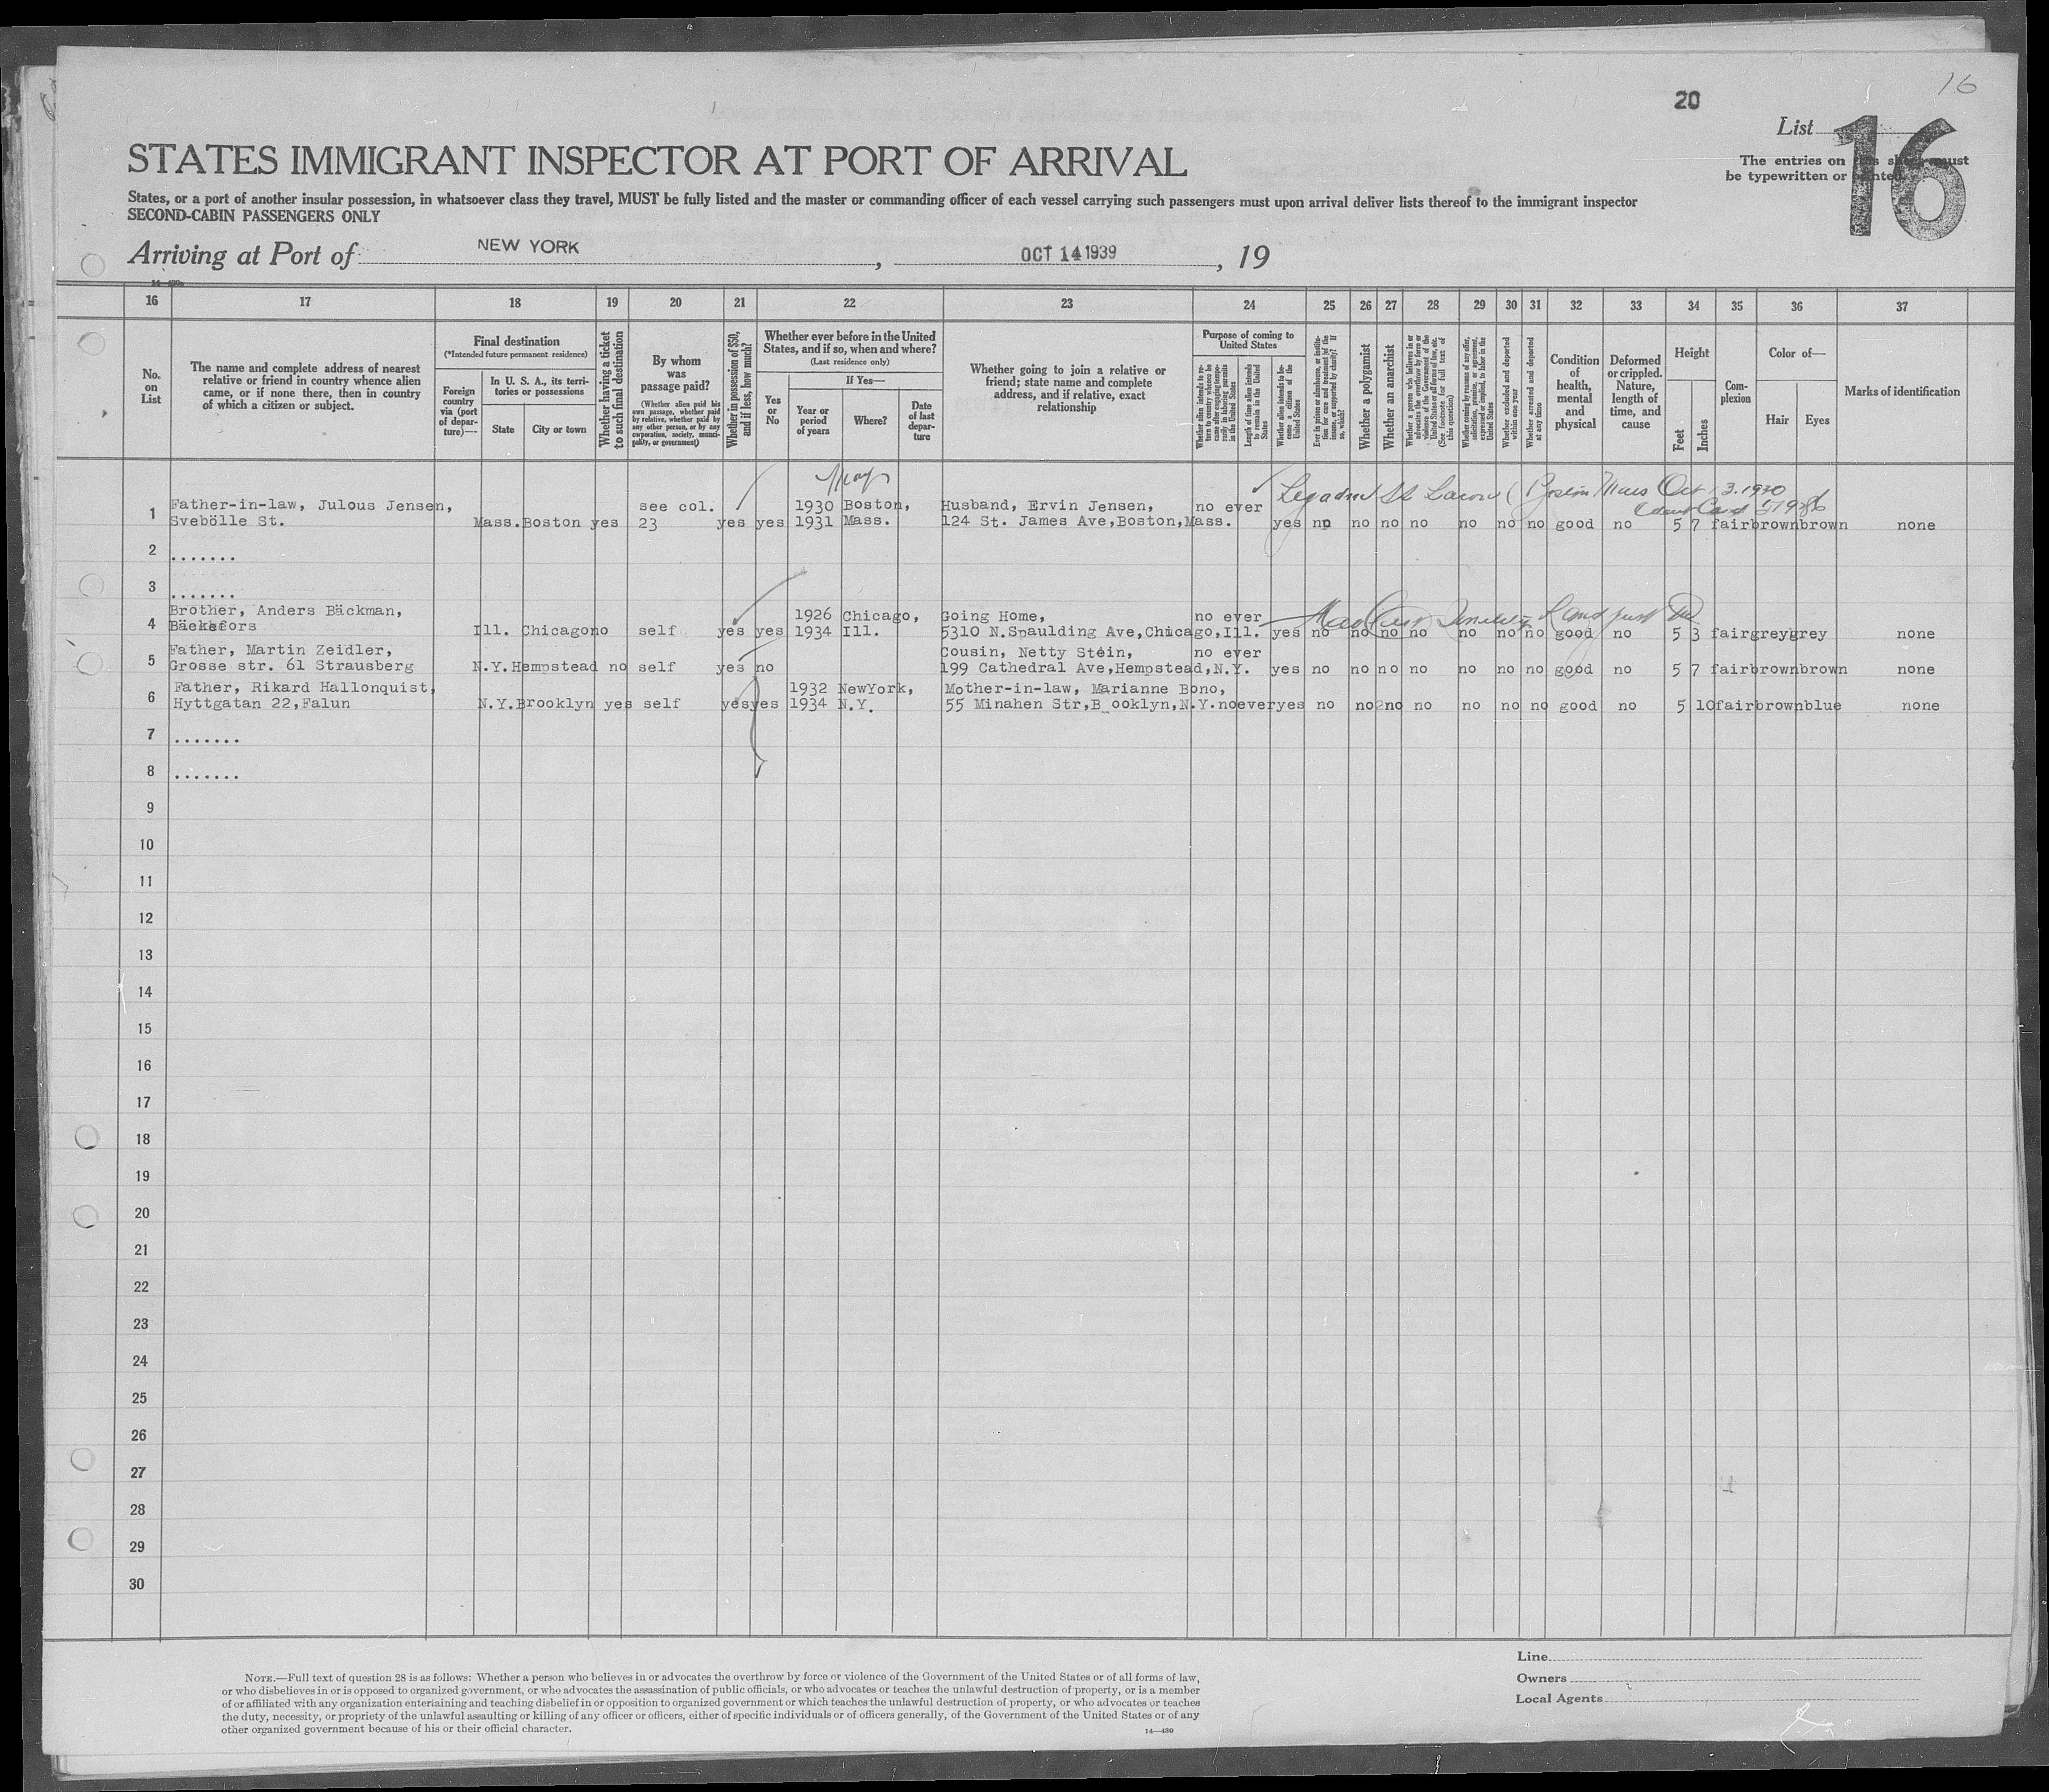 16
20
List
16
The entries on this sheet must
be typewritten or printed
STATES IMMIGRANT INSPECTOR AT PORT OF ARRIVAL
States, or a port of another insular possession, in whatsoever class they travel, MUST be fully listed and the master or commanding officer of each vessel carrying such passengers must upon arrival deliver lists thereof to the immigrant inspector
SECOND-CABIN PASSENGERS ONLY
Arriving at Port of NEW YORK , OCT 14 1939 , 19
16 17 18 19 20 21 22 23 24 25 26 27 28 29 30 31 32 33 34 35 36 37
No. on List
The name and complete address of nearest
relative or friend in country whence alien
came, or if none there, then in country
of which a citizen or subject.
Final destination
(*Intended future permanent residence)
Foreign country via (port of departure)—
In U. S. A., its territories or possessions
State
City or town
Whether having a ticket to such final destination
By whom was passage paid?
(Whether alien paid his own passage, whether paid by relative, whether paid by any other person, or by any corporation, society, municipality, or government)
Whether in possession of $50, and if less, how much?
Whether ever before in the United States, and if so, when and where?
(Last residence only)
Yes or No
If Yes—
Year or period of years
Where?
Date of last departure
Whether going to join a relative or
friend; state name and complete
address, and if relative, exact
relationship
Purpose of coming to United States
Whether alien intends to return to country whence he came after engaging temporarily in laboring pursuits in the United States
Length of time alien intends to remain in the United States
Whether alien intends to become a citizen of the United States
Ever in prison or almshouse, or institution for care and treatment of the insane, or supported by charity? If so, which?
Whether a polygamist
Whether an anarchist
Whether a person who believes in or advocates the overthrow by force or violence of the Government of the United States or all forms of law, etc. (See footnote for full text of this question)
Whether coming by reason of any offer, solicitation, promise, or agreement, expressed or implied, to labor in the United States
Whether excluded and deported within one year
Whether arrested and deported at any time
Condition of health, mental and physical
Deformed or crippled. Nature, length of time, and cause
Height
Feet
Inches
Complexion
Color of—
Hair
Eyes
Marks of identification
May
Oct 3. 1930
1 Father-in-law, Julous Jensen, see col. 1930 Boston, Husband, Ervin Jensen, no ever
Svebölle St. Mass. Boston yes 23 yes yes 1931 Mass. 124 St. James Ave,Boston,Mass. yes no no no no no no no good no 5 7 fair brown brown none
2 .......
3 .......
4 Brother, Anders Bäckman, 1926 Chicago, Going Home, no ever
Bäckefors Ill. Chicago no self yes yes 1934 Ill. 5310 N.Spaulding Ave,Chicago,Ill. yes no no no no no no no good no 5 3 fair grey grey none
5 Father, Martin Zeidler, Cousin, Netty Stein, no ever
Grosse str. 61 Strausberg N.Y. Hempstead no self yes no 199 Cathedral Ave,Hempstead,N.Y. yes no no no no no no no good no 5 7 fair brown brown none
6 Father, Rikard Hallonquist, 1932 NewYork, Mother-in-law, Marianne Bono,
Hyttgatan 22,Falun N.Y. Brooklyn yes self yes yes 1934 N.Y. 55 Minahen Str,B ooklyn,N.Y. no ever yes no no no no no no no good no 5 10 fair brown blue none
7 .......
8 .......
9
10
11
12
13
14
15
16
17
18
19
20
21
22
23
24
25
26
27
28
29
30
NOTE.—Full text of question 28 is as follows: Whether a person who believes in or advocates the overthrow by force or violence of the Government of the United States or of all forms of law,
or who disbelieves in or is opposed to organized government, or who advocates the assassination of public officials, or who advocates or teaches the unlawful destruction of property, or is a member
of or affiliated with any organization entertaining and teaching disbelief in or opposition to organized government or which teaches the unlawful destruction of property, or who advocates or teaches
the duty, necessity, or propriety of the unlawful assaulting or killing of any officer or officers, either of specific individuals or of officers generally, of the Government of the United States or of any
other organized government because of his or their official character.
14—480
Line
Owners
Local Agents